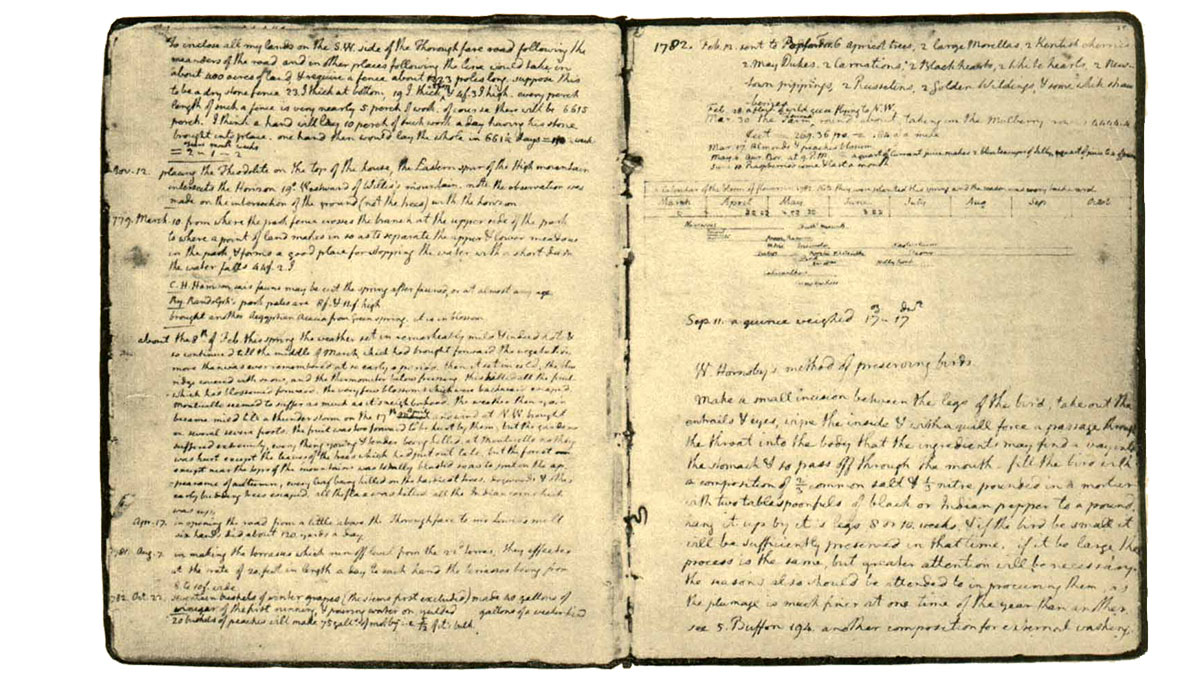 To inclose all my lands on the S.W. side of the Thoroughfare road following the
meanders of the road and in other places following the line would take in
about 400 acres of land & require a fence about 1323 poles long. suppose this
to be a dry stone fence 22 I thick at bottom, 19 I thick & 4f. 3 I high. every porch
length of such a fence is very nearly 5 porch of work. of course there will be 6615
porch. I think a hand will lay 10 porch of such work a day having his stone
brought into place. one hand then would lay the whole in 661½ days = 110 weeks
years month weeks
= 2 - 1 - 2
Nov. 12. placing the Theodolite on the top of the house, the Eastern spur of the High mountain
intersects the Horizon 19° Westward of Willis's mountain. note the observation was
made on the intersection of the ground (not the trees) with the horizon
1779. March. 10 from where the park fence crosses the branch at the upper side of the park
to where a point of land makes in so as to separate the upper & lower meadows
in the park, & forms a good place for stopping the water with a short dam
the water falls 44f. 2 I
C. H. Harrison says fauns may be cut the spring after fauned, or at almost any age
Ry. Randolph's park pales are 8f. & high
brought another Aegyptian Acacia from Green spring. it is in blossom
about the 8th of Feb. this spring the weather set in remarkeably mild & indeed hot &
so continued till the middle of March, which had brought forward the vegetation
more than was ever remembered at so early a period. then it set in cold, the blue
ridge covered with snow, and the thermometer below freezing. this killed all the fruit
which has blossomed forward. the very few blossoms which were backward escaped.
Monticello seemed to suffer as much as it's neighborhood. the weather then again
became mild till a thunder storm on the 17th and wind at N.W. brought
on several severe frosts. the fruit was too forward to be hurt by them, but the
suffered extremely, every thing young & tender being killed. at Monticello nothing
was hurt except the leaves of the trees which had just put out late. but the forest
except near the tops of the mountains was totally blasted so as to put on the ap-
pearance of autumn, every leaf being killed on the hardiest trees. & other
early budding trees escaped. all the was killed all the Indian corn which
was up.
Apr. 17. in opening the road from a little above the Thoroughfare to mr Lewis's mill
six hands did about 120 yards a day.
1781. Aug. 7. in making the terrasses which run off level from the terras, they effected
at the rate of 20. feet in length a day to each hand the terrasses being from
8 to 10f. wide
1782. Oct. 22. seventeen bushels of winter grapes (the stems first excluded) made 40 gallons of
vinegar of the first running, & pouring water on yeilded gallons of a weaker kind
20 bushels of peaches will make 75 galls. of mobby. i.e. its bulk.
1782. Feb. 12. sent to Poplar for. 6 apricot trees, 2 large Morellas, 2 Kentish cherries
2. May Dukes. 2 Carnations, 2 Black hearts, 2 white hearts, 2 New-
town pippings, 2 Russetins, 2 Golden Wildings, & some white straw
berries
Feb. 28. a flock of wild geese flying to N.W.
Mar. 30. the round about taking in the Mulberry row
feet = 269.36 po. = .84 of a mile
Mar. 17. Almonds & peaches blossom
a quart of currant juice makes 2 blue teacups of jelly,
Raspberries come & last a month
a Calendar of the bloom of flowers in 1782. Note they were planted this spring and the season was very backward
March April May June July Aug Sep. Octob.
Narcissus
Sep. 11. a quince weighed 17 - 17
W. Hornsby's method of preserving birds.
Make a small incision between the legs of the bird, take out the
entrails & eyes, wipe the inside & with a quill force a passage through
the throat into the body that the ingredients may find a way into
the stomach & so pass off through the mouth. fill the bird with
a composition of ⅔ common salt & ⅓ nitre pounded in a mortar
with two tablespoonfuls of black or Indian pepper to a pound.
hang it up by it's legs 8 or 10. weeks, & if the bird be small it
will be sufficiently preserved in that time. if it be large, the
process is the same, but greater attention will be necessary.
the seasons also should be attended to in procuring them, as
the plumage is much finer at one time of the year than another.
see 5. Buffon 194. another composition for external washing.